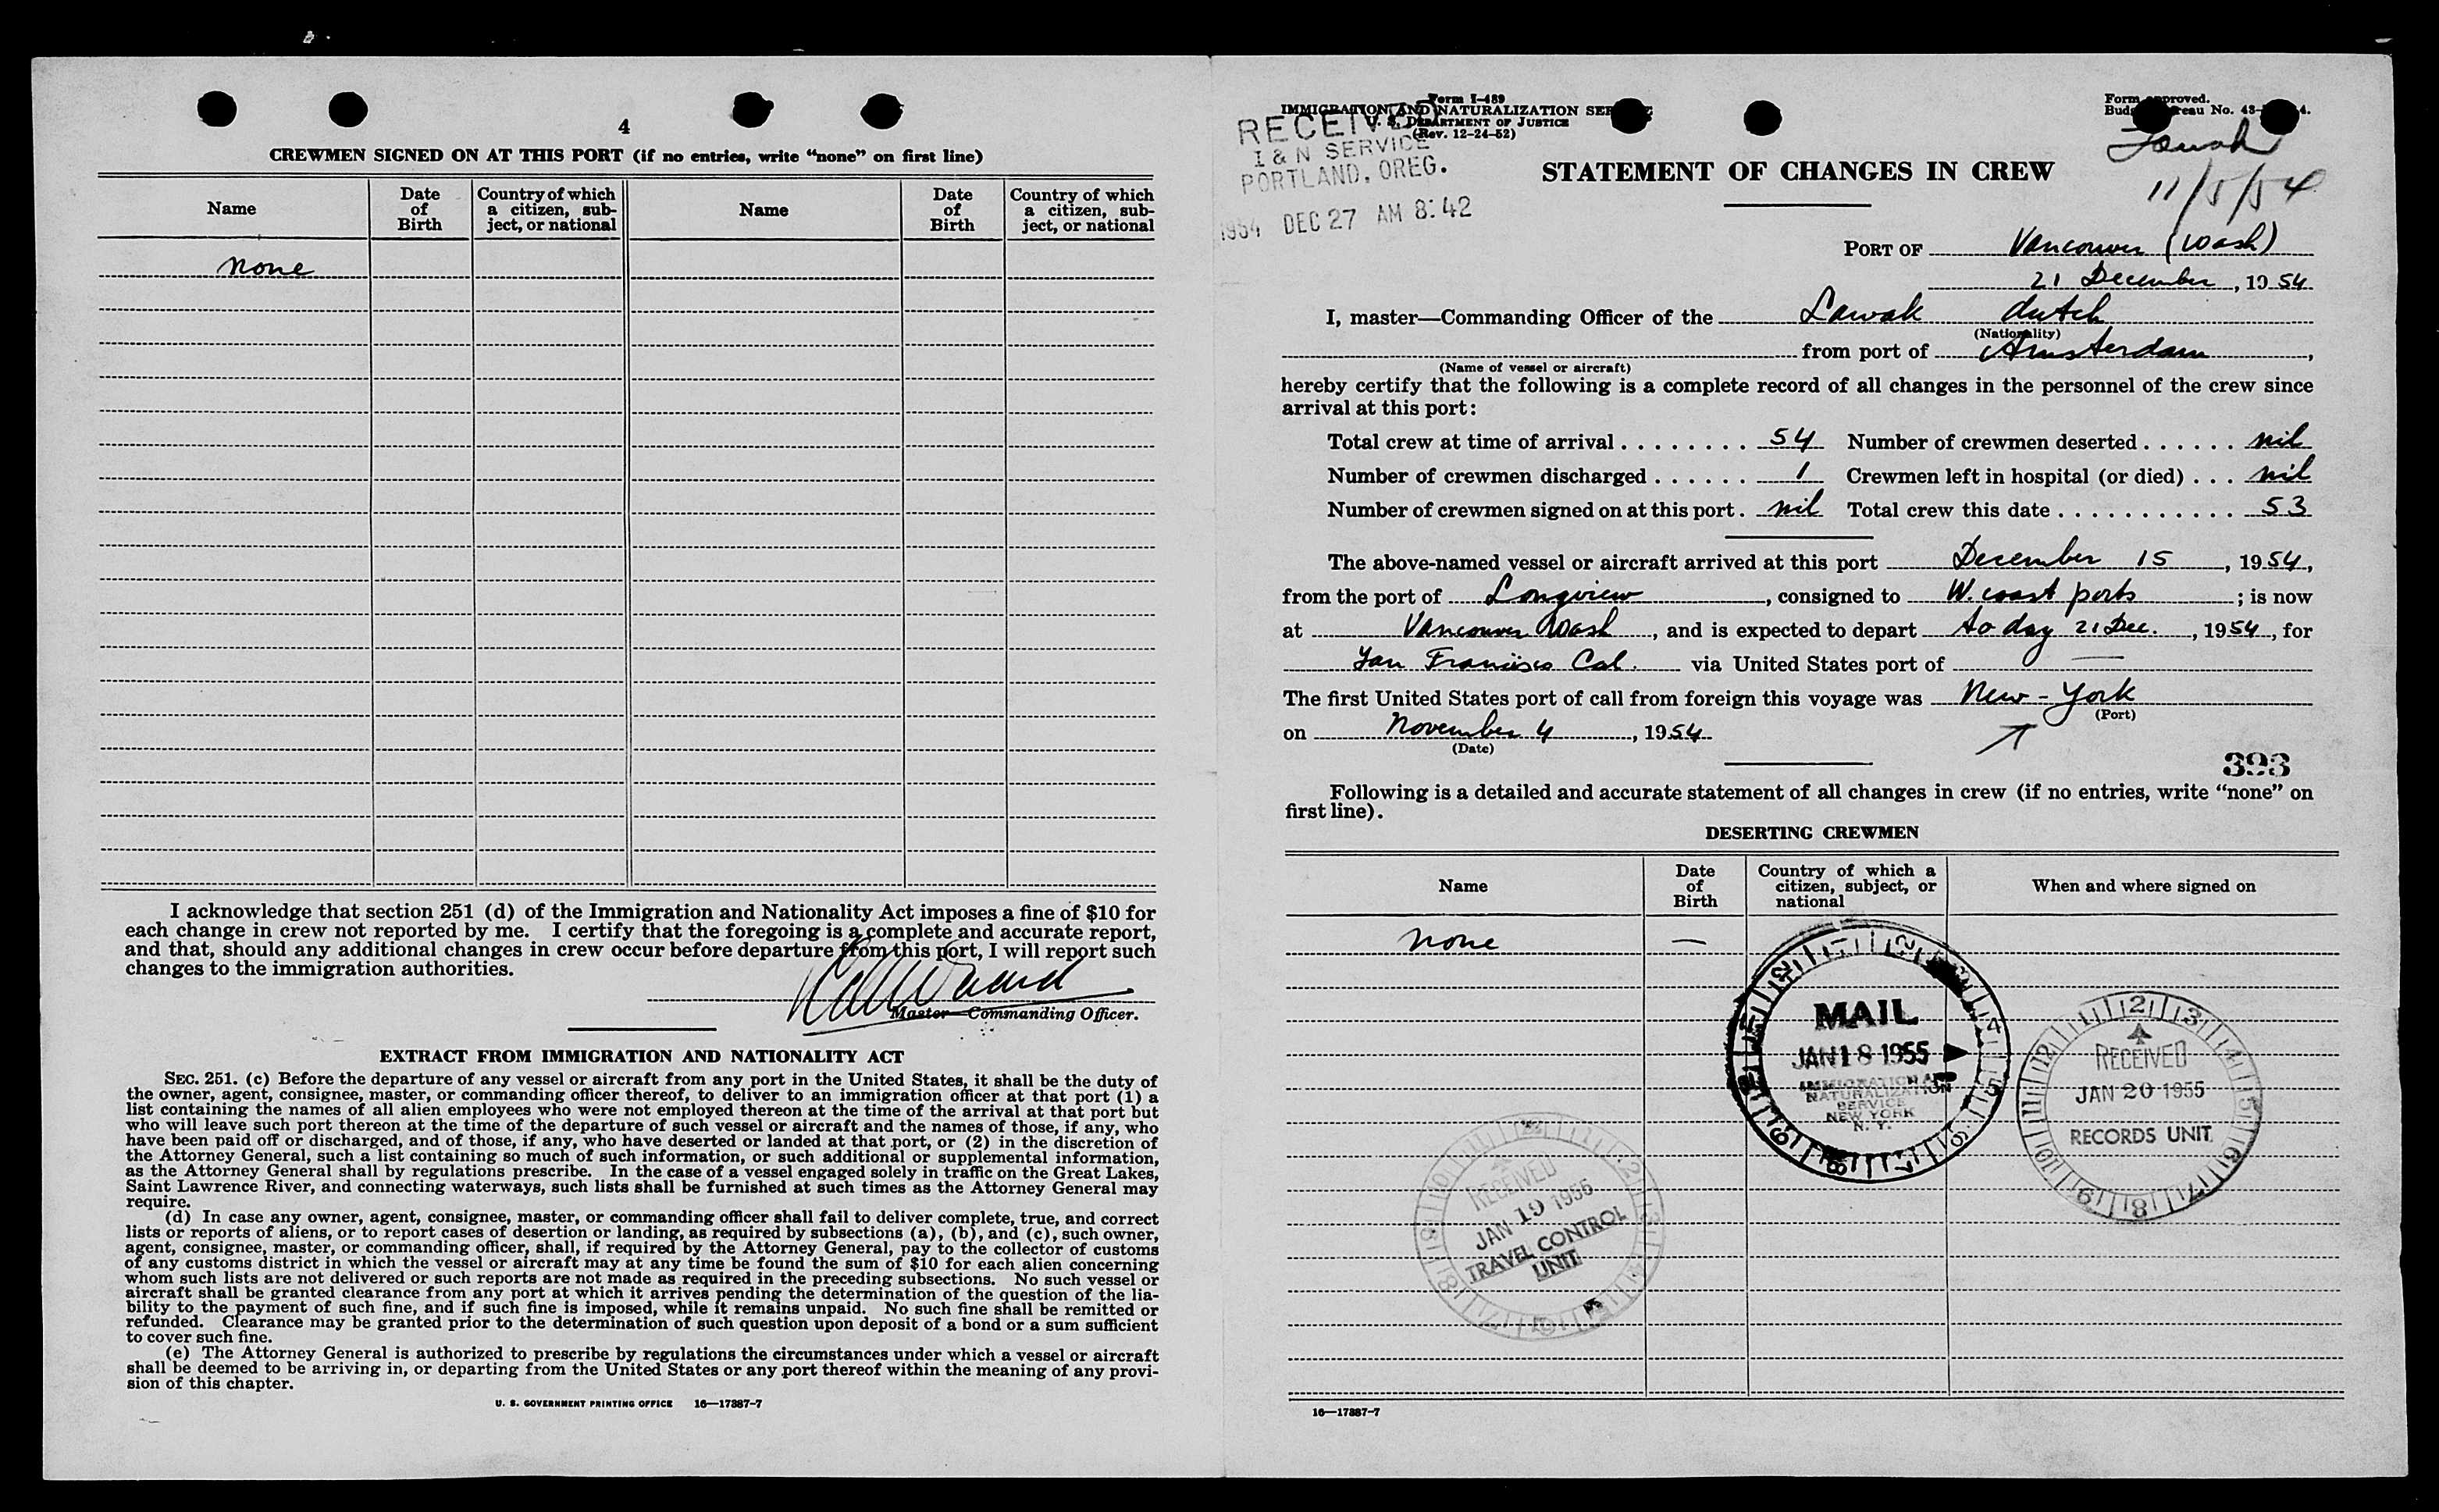 4
CREWMEN SIGNED ON AT THIS PORT (if no entries, write “none” on first line)
Name
Date of Birth
Country of which a citizen, sub-ject, or national
Name
Date of Birth
Country of which a citizen, sub-ject, or national
none
I acknowledge that section 251 (d) of the Immigration and Nationality Act imposes a fine of $10 for
each change in crew not reported by me. I certify that the foregoing is a complete and accurate report,
and that, should any additional changes in crew occur before departure from this port, I will report such
changes to the immigration authorities.
Master—Commanding Officer.
EXTRACT FROM IMMIGRATION AND NATIONALITY ACT
SEC. 251. (c) Before the departure of any vessel or aircraft from any port in the United States, it shall be the duty of
the owner, agent, consignee, master, or commanding officer thereof, to deliver to an immigration officer at that port (1) a
list containing the names of all alien employees who were not employed thereon at the time of the arrival at that port but
who will leave such port thereon at the time of the departure of such vessel or aircraft and the names of those, if any, who
have been paid off or discharged, and of those, if any, who have deserted or landed at that port, or (2) in the discretion of
the Attorney General, such a list containing so much of such information, or such additional or supplemental information,
as the Attorney General shall by regulations prescribe. In the case of a vessel engaged solely in traffic on the Great Lakes,
Saint Lawrence River, and connecting waterways, such lists shall be furnished at such times as the Attorney General may
require.
(d) In case any owner, agent, consignee, master, or commanding officer shall fail to deliver complete, true, and correct
lists or reports of aliens, or to report cases of desertion or landing, as required by subsections (a), (b), and (c), such owner,
agent, consignee, master, or commanding officer, shall, if required by the Attorney General, pay to the collector of customs
of any customs district in which the vessel or aircraft may at any time be found the sum of $10 for each alien concerning
whom such lists are not delivered or such reports are not made as required in the preceding subsections. No such vessel or
aircraft shall be granted clearance from any port at which it arrives pending the determination of the question of the lia-
bility to the payment of such fine, and if such fine is imposed, while it remains unpaid. No such fine shall be remitted or
refunded. Clearance may be granted prior to the determination of such question upon deposit of a bond or a sum sufficient
to cover such fine.
(e) The Attorney General is authorized to prescribe by regulations the circumstances under which a vessel or aircraft
shall be deemed to be arriving in, or departing from the United States or any port thereof within the meaning of any provi-
sion of this chapter.
U. S. GOVERNMENT PRINTING OFFICE 16—17387-7
Form I-489
IMMIGRATION AND NATURALIZATION
U. S. DEPARTMENT OF JUSTICE
(Rev. 12-24-52)
RECEIVED
I & N SERVICE
PORTLAND, OREG.
1954 DEC 27 AM 8:42
Form approved.
No. 43-
Lawak
11/5/54
STATEMENT OF CHANGES IN CREW
PORT OF Vancouver (Wash)
21 December, 1954
I, master—Commanding Officer of the Lawak dutch
(Nationality)
from port of Amsterdam,
(Name of vessel or aircraft)
hereby certify that the following is a complete record of all changes in the personnel of the crew since
arrival at this port:
Total crew at time of arrival . . . . . . . . 54 Number of crewmen deserted . . . . . . nil
Number of crewmen discharged . . . . . . 1 Crewmen left in hospital (or died) . . . nil
Number of crewmen signed on at this port . nil Total crew this date . . . . . . . . . . . 53
The above-named vessel or aircraft arrived at this port December 15, 1954,
from the port of Longview, consigned to W. coast ports; is now
at Vancouver Wash, and is expected to depart to day 21 Dec., 1954, for
San Francisco Cal. via United States port of —
The first United States port of call from foreign this voyage was New-York
(Port)
on November 4, 1954
(Date)
393
Following is a detailed and accurate statement of all changes in crew (if no entries, write “none” on
first line).
DESERTING CREWMEN
Name
Date of Birth
Country of which a citizen, subject, or national
When and where signed on
none —
MAIL
JAN 18 1955
IMMIGRATION AND
NATURALIZATION
SERVICE
NEW YORK
N. Y.
RECEIVED
JAN 20 1955
RECORDS UNIT
RECEIVED
JAN 19 1955
TRAVEL CONTROL
UNIT
16—17387-7